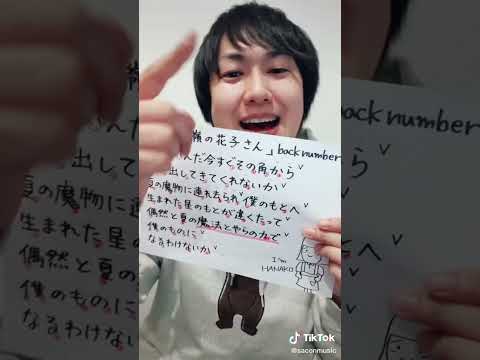 嶺の花子さん」back number
だ今すぐその角から
出してきてくれないか
夏の魔物に連れ去られ僕のもとへ
生まれた星のもとが違くたって
偶然と夏の魔法とやらの力で
僕のものに
なるわけないか
I'm
HANAKO
back number
生まれた星の
偶然と夏の
僕のものに
なるわけない
TikTok
@saconmusic